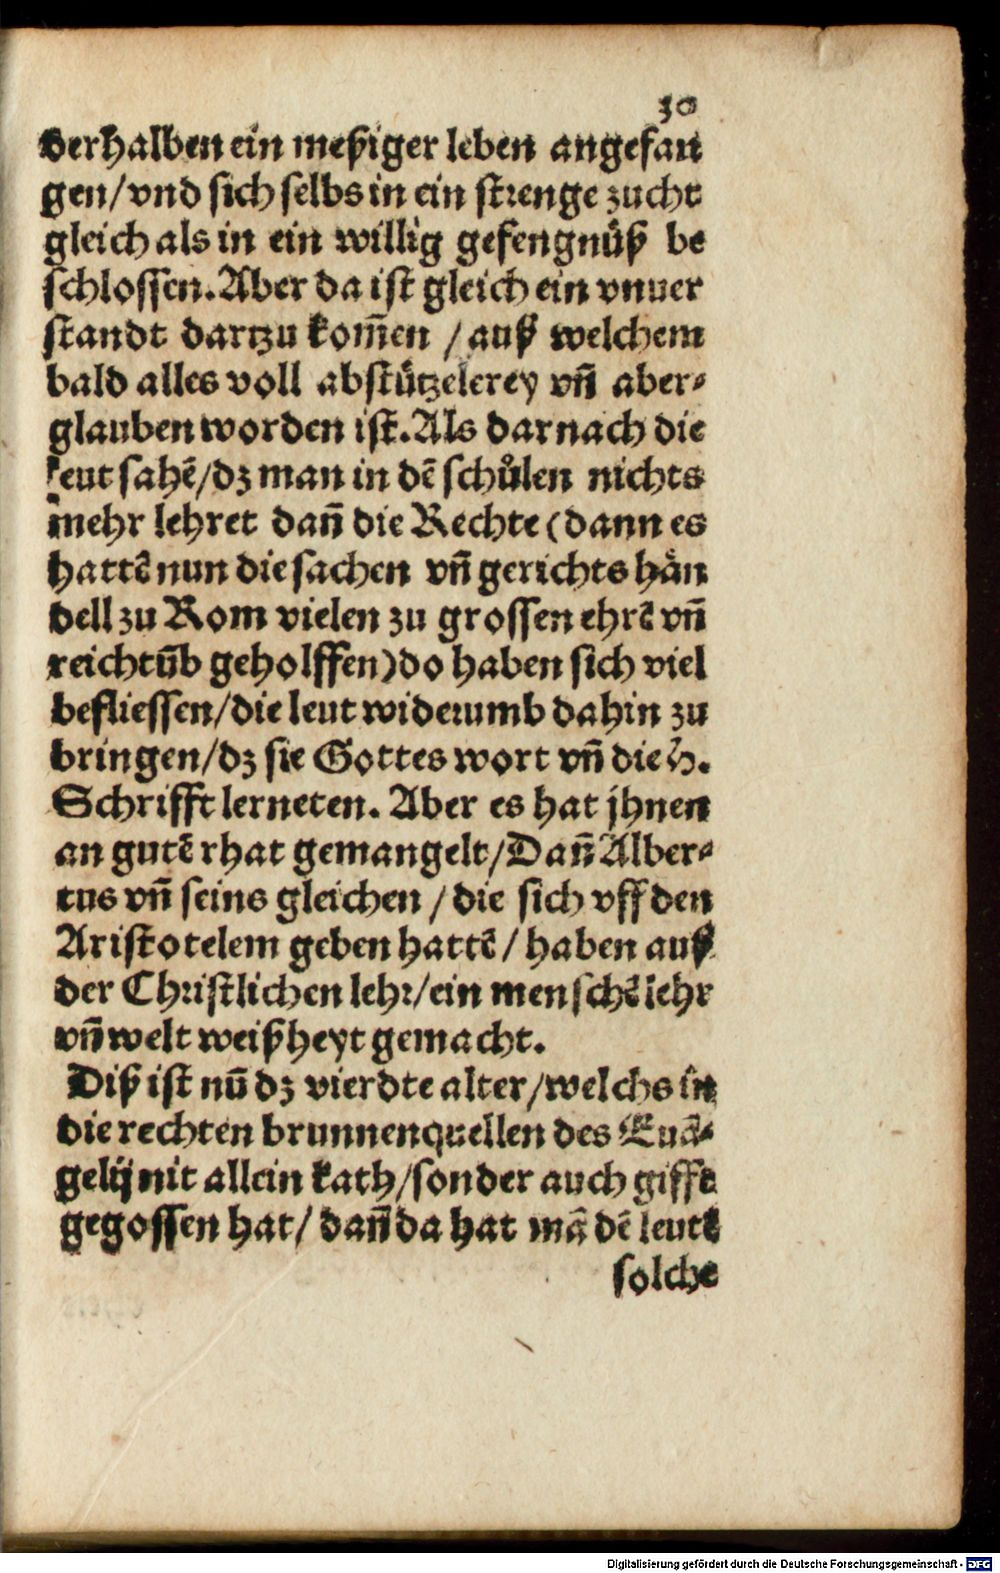 30
derhalben ein meßiger leben angefan
gen/vnd sich selbs in ein strenge zucht
gleich als in ein willig gefengnüß be
schlossen. Aber da ist gleich ein vnuer
standt dartzu kom̃en /auß welchem
bald alles voll abstützelerey vñ aber-
glauben worden ist. Als darnach die
leut sahẽ/dz man in dẽ schůlen nichts
mehr lehret dañ die Rechte (dann es
hattẽ nun die sachen vñ gerichts hän
dell zu Rom vielen zu grossen ehrẽ vñ
reichtũb geholffen) do haben sich viel
befliessen/die leut widerumb dahin zu
bringen/dz sie Gottes wort vñ die h.
Schrifft lerneten. Aber es hat jhnen
an gutẽ rhat gemangelt/Dañ Alber-
tus vñ seins gleichen / die sich vff den
Aristotelem geben hattẽ / haben auß
der Christlichen lehr/ein menschẽ lehr
vñ welt weißheyt gemacht.
Diß ist nũ dz vierdte alter/welchs in
die rechten brunnenquellen des Euã-
gelij nit allein kath/sonder auch gifft
gegossen hat/ dañ da hat mã dẽ leutẽ
solche
Digitalisierung gefördert durch die Deutsche Forschungsgemeinschaft - DFG